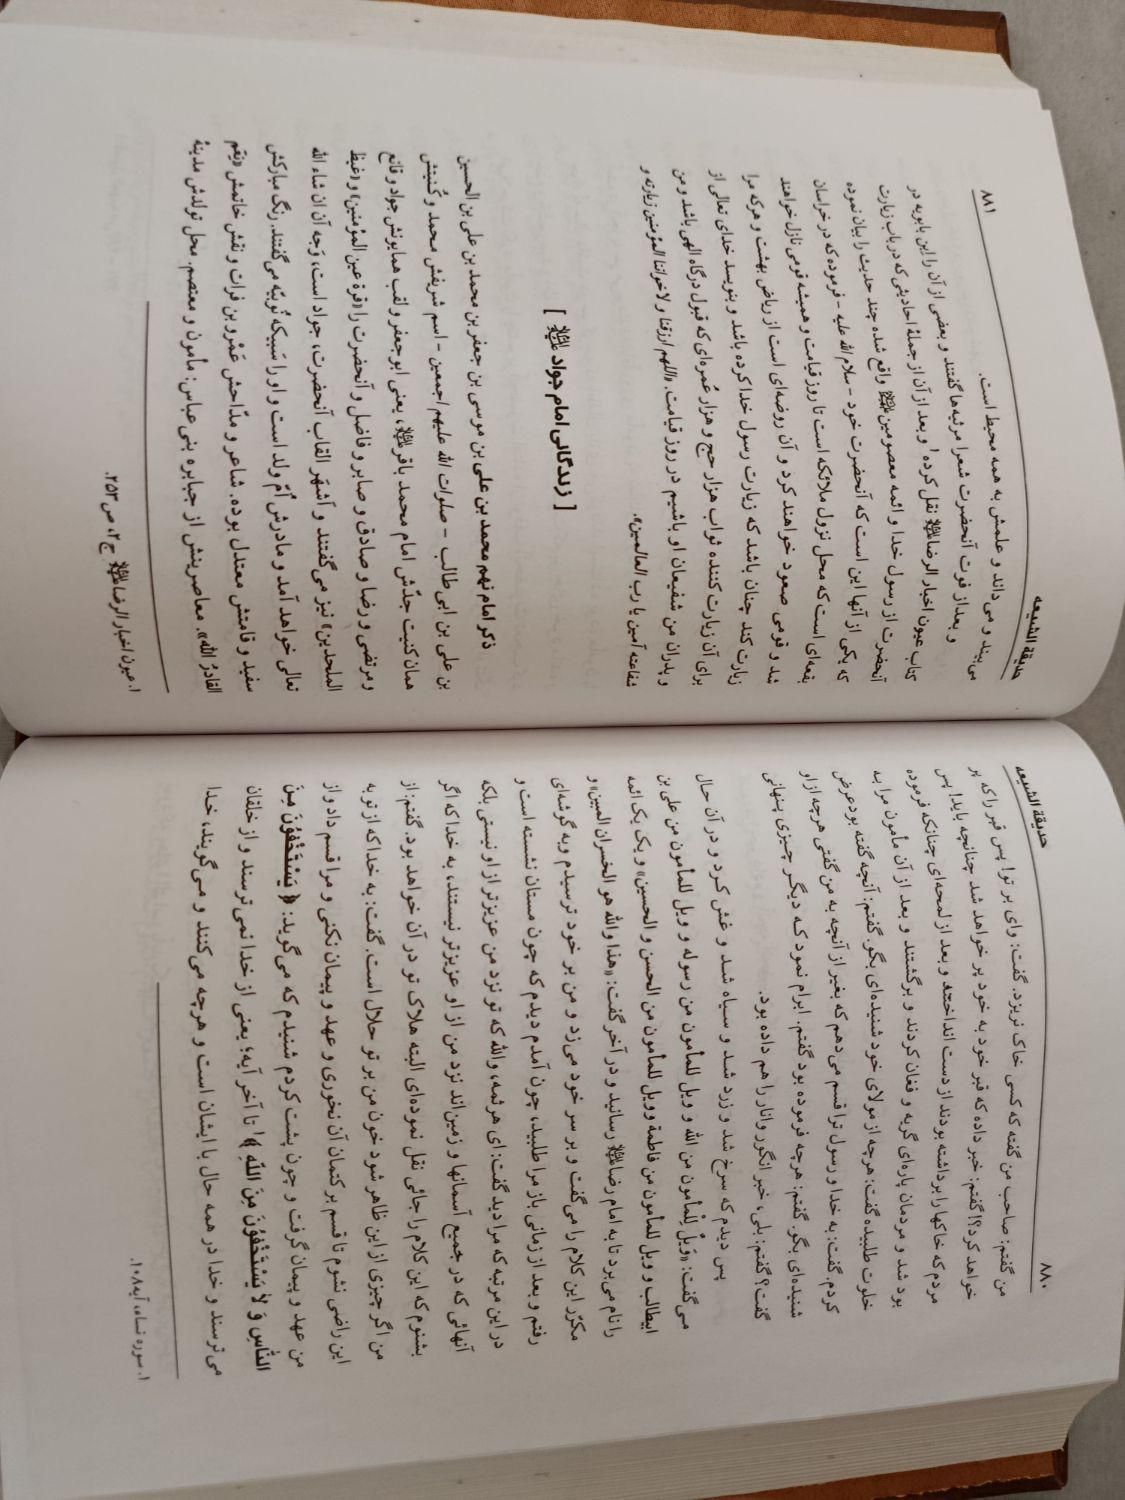 ۸۸۰
حدیقة الشیعه
من گفتم: صاحب من گفته که کسی خاک نریزد. گفت: وای بر تو! پس قبر را که پر
خواهد کرد؟! گفتم: خبر داده که قبر خود به خود پر خواهد شد چنانچه باید! پس
مردم که خاکها را برداشته بودند از دست انداختند و بعد از لمحه‌ای چنانکه فرموده
بود شد و مردمان پاره‌ای گریه و فغان کردند و برگشتند و بعد از آن مأمون مرا به
خلوت طلبیده گفت: هرچه از مولای خود شنیده‌ای بگو. گفتم: آنچه گفته بود عرض
کردم. گفت: به خدا و رسول ترا قسم می دهم که بغیر از آنچه به من گفتی هرچه از او
شنیده‌ای بگو. گفتم: هرچه فرموده بود گفتم. ابرام نمود کـه دیگـر چـیزی پـنهانی
گفت؟ گفتم: بلی، خبر انگور و انار را هم داده بود.
پس دیدم که سرخ شد و زرد شـد و سـیاه شـد و غش کـرد و در آن حال
مـی گفت: «وَیلٌ لِلْمأمون من الله و ویل للمأمون من رسوله و ویل للمأمون من علی بن
ابیطالب و ویل للمأمون من فاطمة وویل للمأمون من الحسن و الحسین» و یک یک ائمه
را نام می برد تا به امام رضا ﷷ رسانید و در آخر گفت: «هذا والله هو الخسران المبین» و
مکرّر این کلام را می گفت و بر سر خود می زد و من بر خود ترسیدم وبه گوشه‌ای
رفتم و بعد از زمانی باز مرا طلبید، چون آمدم دیدم که چون مستان نشسته است و
در این مرتبه که مرا دید گفت: ای هرثمه، والله که تو نزد من عزیز تر از او نیستی بلکه
آنهائی که در جمیع آسمانها و زمین‌اند نزد من از او عزیز تر نیستند، به خدا که اگر
بشنوم که این کلام را جائی نقل نموده‌ای البته هلاک تو در آن خواهد بود. گفتم: از
من اگر چیزی از این ظاهر شود خون من بر تو حلال است. گفت: به خدا که از تو به
این راضی نشوم تا قسم بر کتمان آن نخوری و عهد و پیمان نکنی و مرا قسم داد و از
من عهد و پیمان گرفت و چون پشت کردم شنیدم که می گوید: ﴿ یَسْتَخْفُونَ مِنَ
النّاسِ وَ لاٰ یَسْتَخْفُونَ مِنَ اللّهِ ﴾۱ تا آخر آیه؛ یعنی از خدا نمی ترسند و از خلقان
می ترسند و خدا در همه حال با ایشان است و هرچه می کنند و می گویند، خدا
۱. سوره نساء، آیه۱۰۸.
حدیقة الشیعه
۸۸۱
می بیند و می داند و علمش به همه محیط است.
و بعد از فوت آنحضرت شعرا مرثیه‌ها گفتند و بعضی از آن را ابن بابویه در
کتاب عیون اخبار الرضا ﷷ نقل کرده۱ و بعد از آن از جملهٔ احادیثی که در باب زیارت
آنحضرت از رسول خدا و ائمه معصومین ﷷ واقع شده چند حدیث را بیان نموده
که یکی از آنها این است که آنحضرت خود - سلام الله علیه - فرموده که در خراسان
بقعه‌ای است که محل نزول ملائکه است تا روز قیامت و همیشه قومی نازل خواهند
شد و قومی صعود خواهند کرد و آن روضه‌ای است از ریاض بهشت و هرکه مرا
زیارت کند چنان باشد که زیارت رسول خدا کرده باشد و بنویسد خدای تعالی از
برای آن زیارت کننده ثواب هزار حج و هزار عُمره‌ای که قبول درگاه الهی باشد و من
و پدران من شفیعان او باشیم در روز قیامت. «اللهم ارزقنا و لاخواننا المؤمنین زیارته و
شفاعته آمین یا رب العالمین».
[ زندگانی امام جواد ﷷ ]
ذکر امام نهم محمد بن علی بن موسی بن جعفر بن محمد بن علی بن الحسین
بن علی بن ابی طالب - صلوات الله علیهم اجمعین - اسم شریفش محمد و کُنیتش
همان کنیت جدّش امام محمد باقر ﷷ، یعنی ابو جعفر و لقب همایونش جواد و قانع
و مرتضی و رضا و صادق و صابر و فاضل و آنحضرت را «قرة عین المؤمنین» و «غیظ
الملحدین» نیز می گفتند و اَشهَر القاب آنحضرت، جواد است، وَجه آن ان شاء الله
تعالی خواهد آمد و مادرش اُمّ ولد است و او را سَبیکه نُوبیّه می گفتند. رنگ مبارکش
سفید و قامتش معتدل بوده. شاعر و مدّاحش عَمْرو بن فرات و نقش خاتمش «نِعم
القادرُ الله». معاصرینش از جبابره بنی عباس: مأمون و معتصم. محل تولدش مدینهٔ
۱. عیون اخبار الرضا ﷷ ج ۲، ص ۲۵۳.